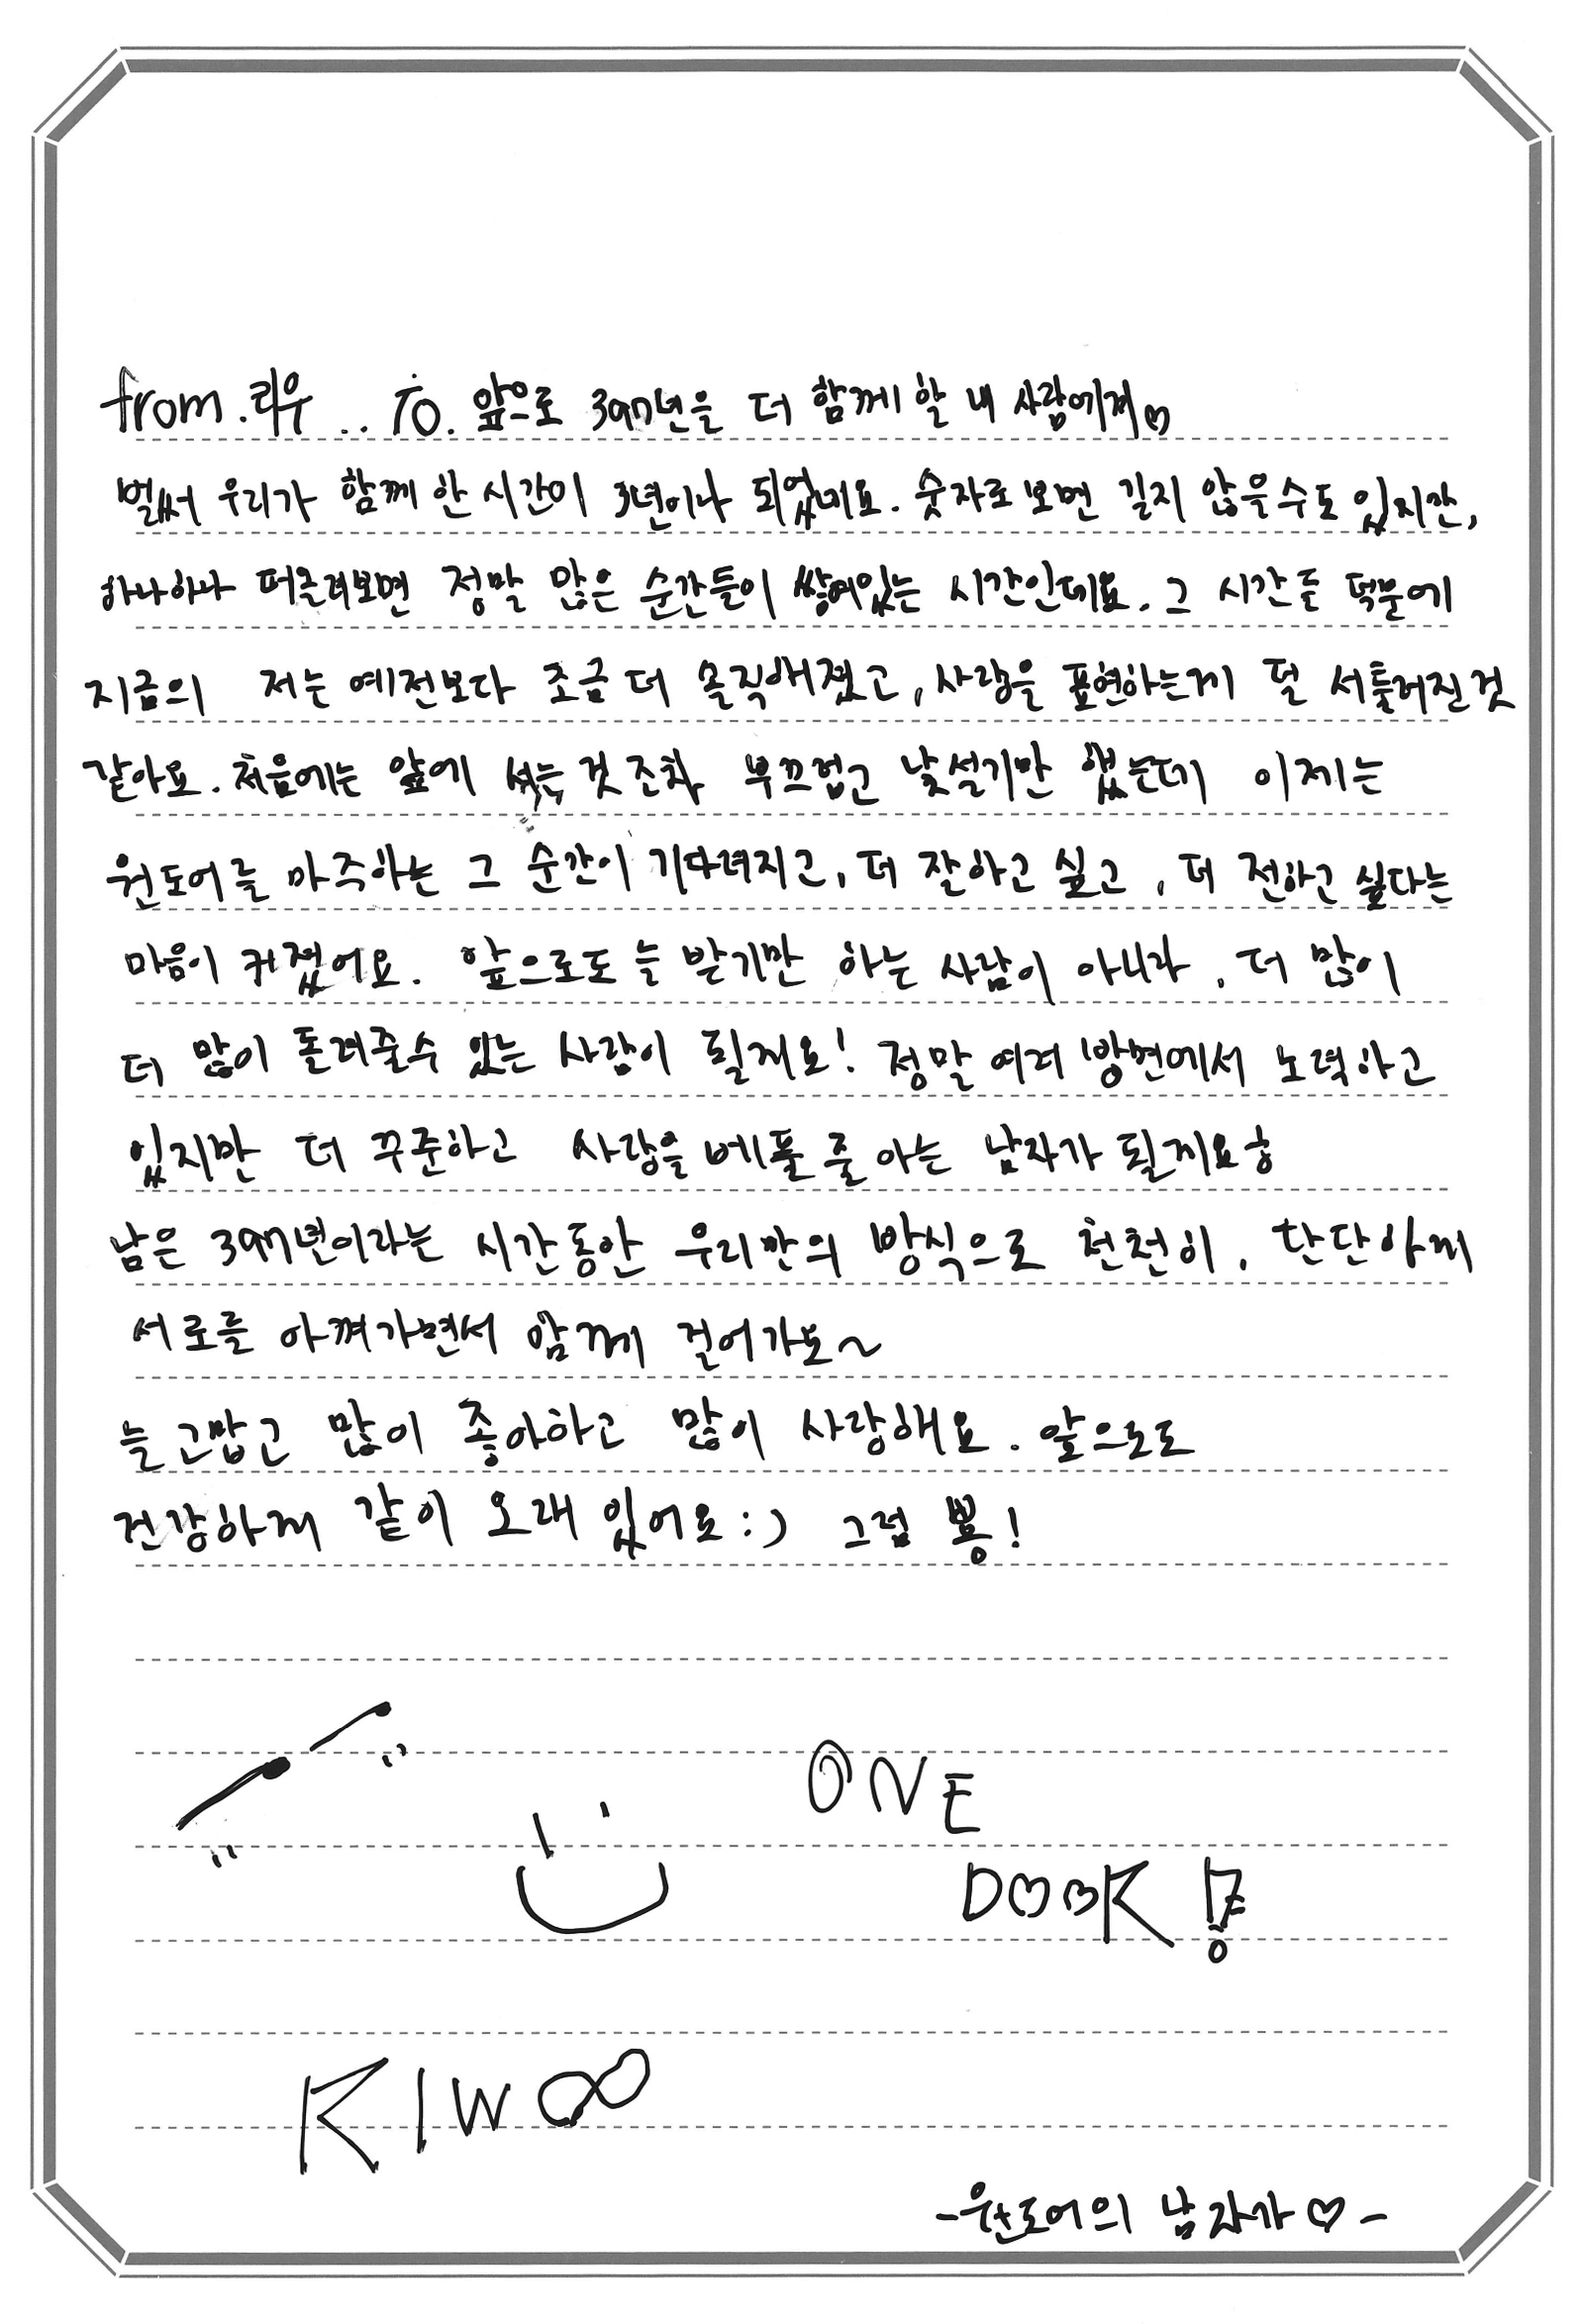 from. 리우 .. To. 앞으로 397년을 더 함께 할 내 사람에게♡
벌써 우리가 함께 한 시간이 3년이나 되었네요. 숫자로 보면 길지 않을수도 있지만,
하나하나 떠올려보면 정말 많은 순간들이 쌓여있는 시간인데요. 그 시간들 덕분에
지금의 저는 예전보다 조금 더 솔직해졌고, 사랑을 표현하는게 덜 서툴러진 것
같아요. 처음에는 앞에 서는 것 조차 부끄럽고 낯설기만 했는데 이제는
원도어를 마주하는 그 순간이 기다려지고, 더 잘하고 싶고, 더 전하고 싶다는
마음이 커졌어요. 앞으로도 늘 받기만 하는 사람이 아니라, 더 많이
더 많이 돌려줄수 있는 사람이 될게요! 정말 여러 방면에서 노력하고
있지만 더 꾸준하고 사랑을 베풀 줄 아는 남자가 될게요ㅎ
남은 397년이라는 시간동안 우리만의 방식으로 천천히, 단단하게
서로를 아껴가면서 함께 걸어가요~
늘 고맙고 많이 좋아하고 많이 사랑해요. 앞으로도
건강하게 같이 오래 있어요 :) 그럼 뿅!
ONE
DOOR!
RIWOO
-원도어의 남자가♡-